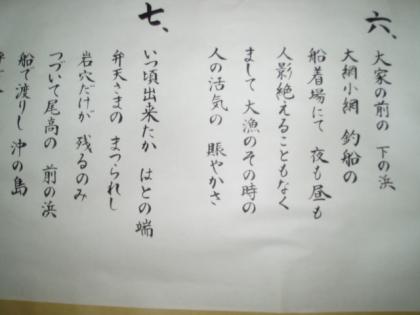 六、
大家の前の 下の浜
大網小網 釣船の
船着場にて 夜も昼も
人影絶えることもなく
まして 大漁のその時の
人の活気の 賑やかさ
七、
いつ頃出来たか はとの端
弁天さまの まつられし
岩穴だけが 残るのみ
つづいて尾高の 前の浜
船で渡りし 沖の島